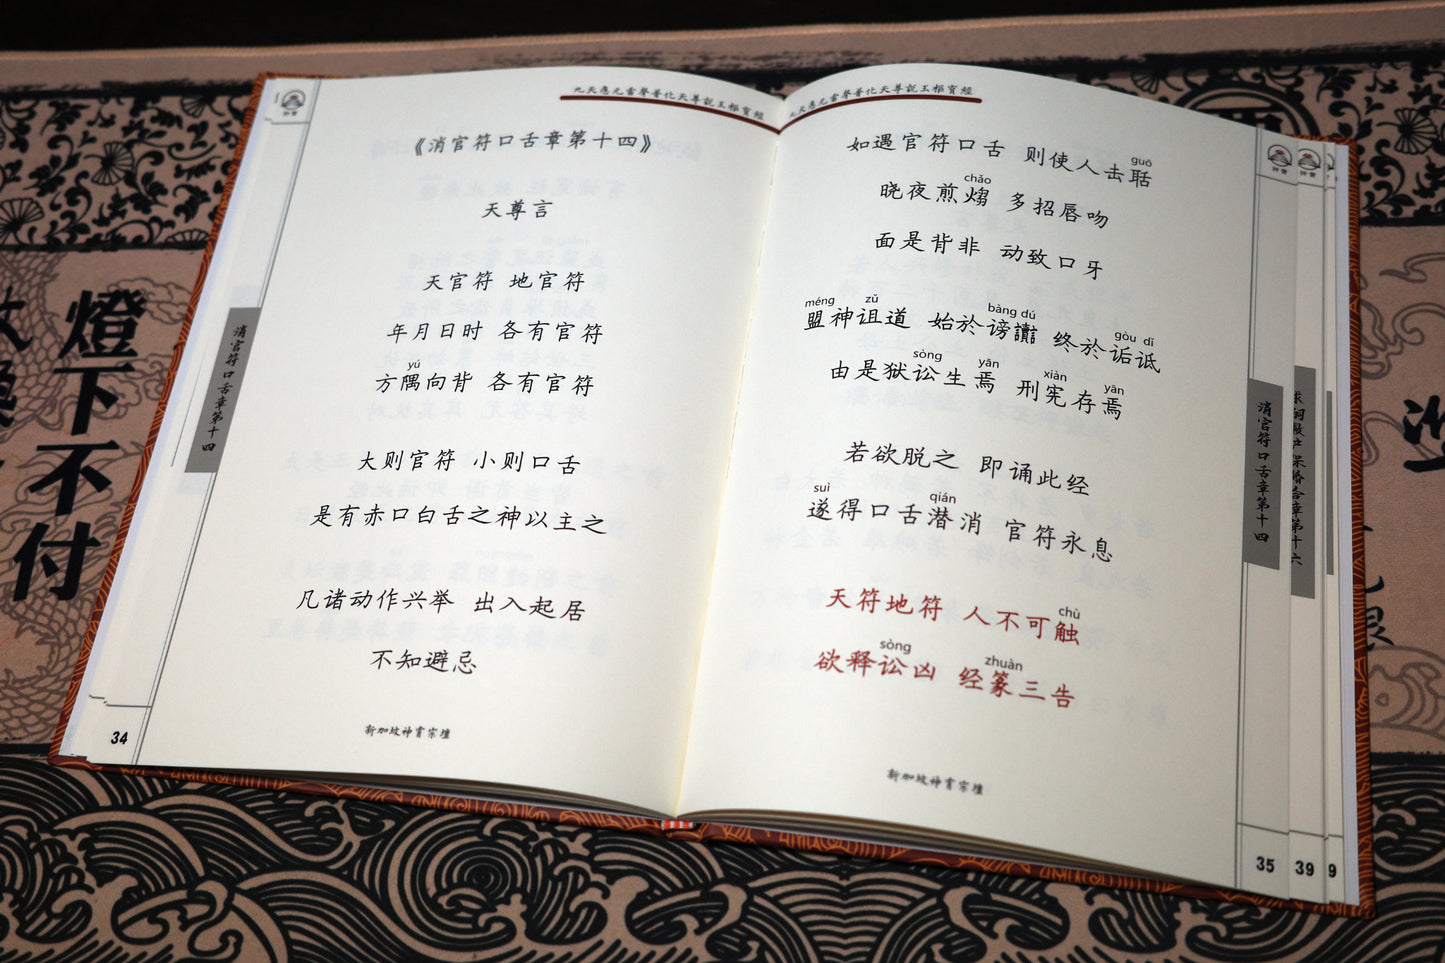 九天應元雷聲普化天尊說玉樞寶經
《消官符口舌章第十四》
天尊言
天官符 地官符
年月日时 各有官符
yú
方隅向背 各有官符
大则官符 小则口舌
是有赤口白舌之神以主之
凡诸动作兴举 出入起居
不知避忌
新加坡神霄宗壇
34
消官符口舌章第十四
九天應元雷聲普化天尊說玉樞寶經
如遇官符口舌 则使人击聒
guō
晓夜煎熠 多招唇吻
chǎo
面是背非 动致口牙
méng zǔ bàng dú gòu dǐ
盟神诅道 始於谤讟 终於诟诋
sòng yān xiàn yān
由是狱讼生焉 刑宪存焉
若欲脱之 即诵此经
suì qián
遂得口舌潜消 官符永息
chù
天符地符 人不可触
sòng zhuàn
欲释讼凶 经篆三告
新加坡神霄宗壇
35
消官符口舌章第十四
39
9
燈下不付